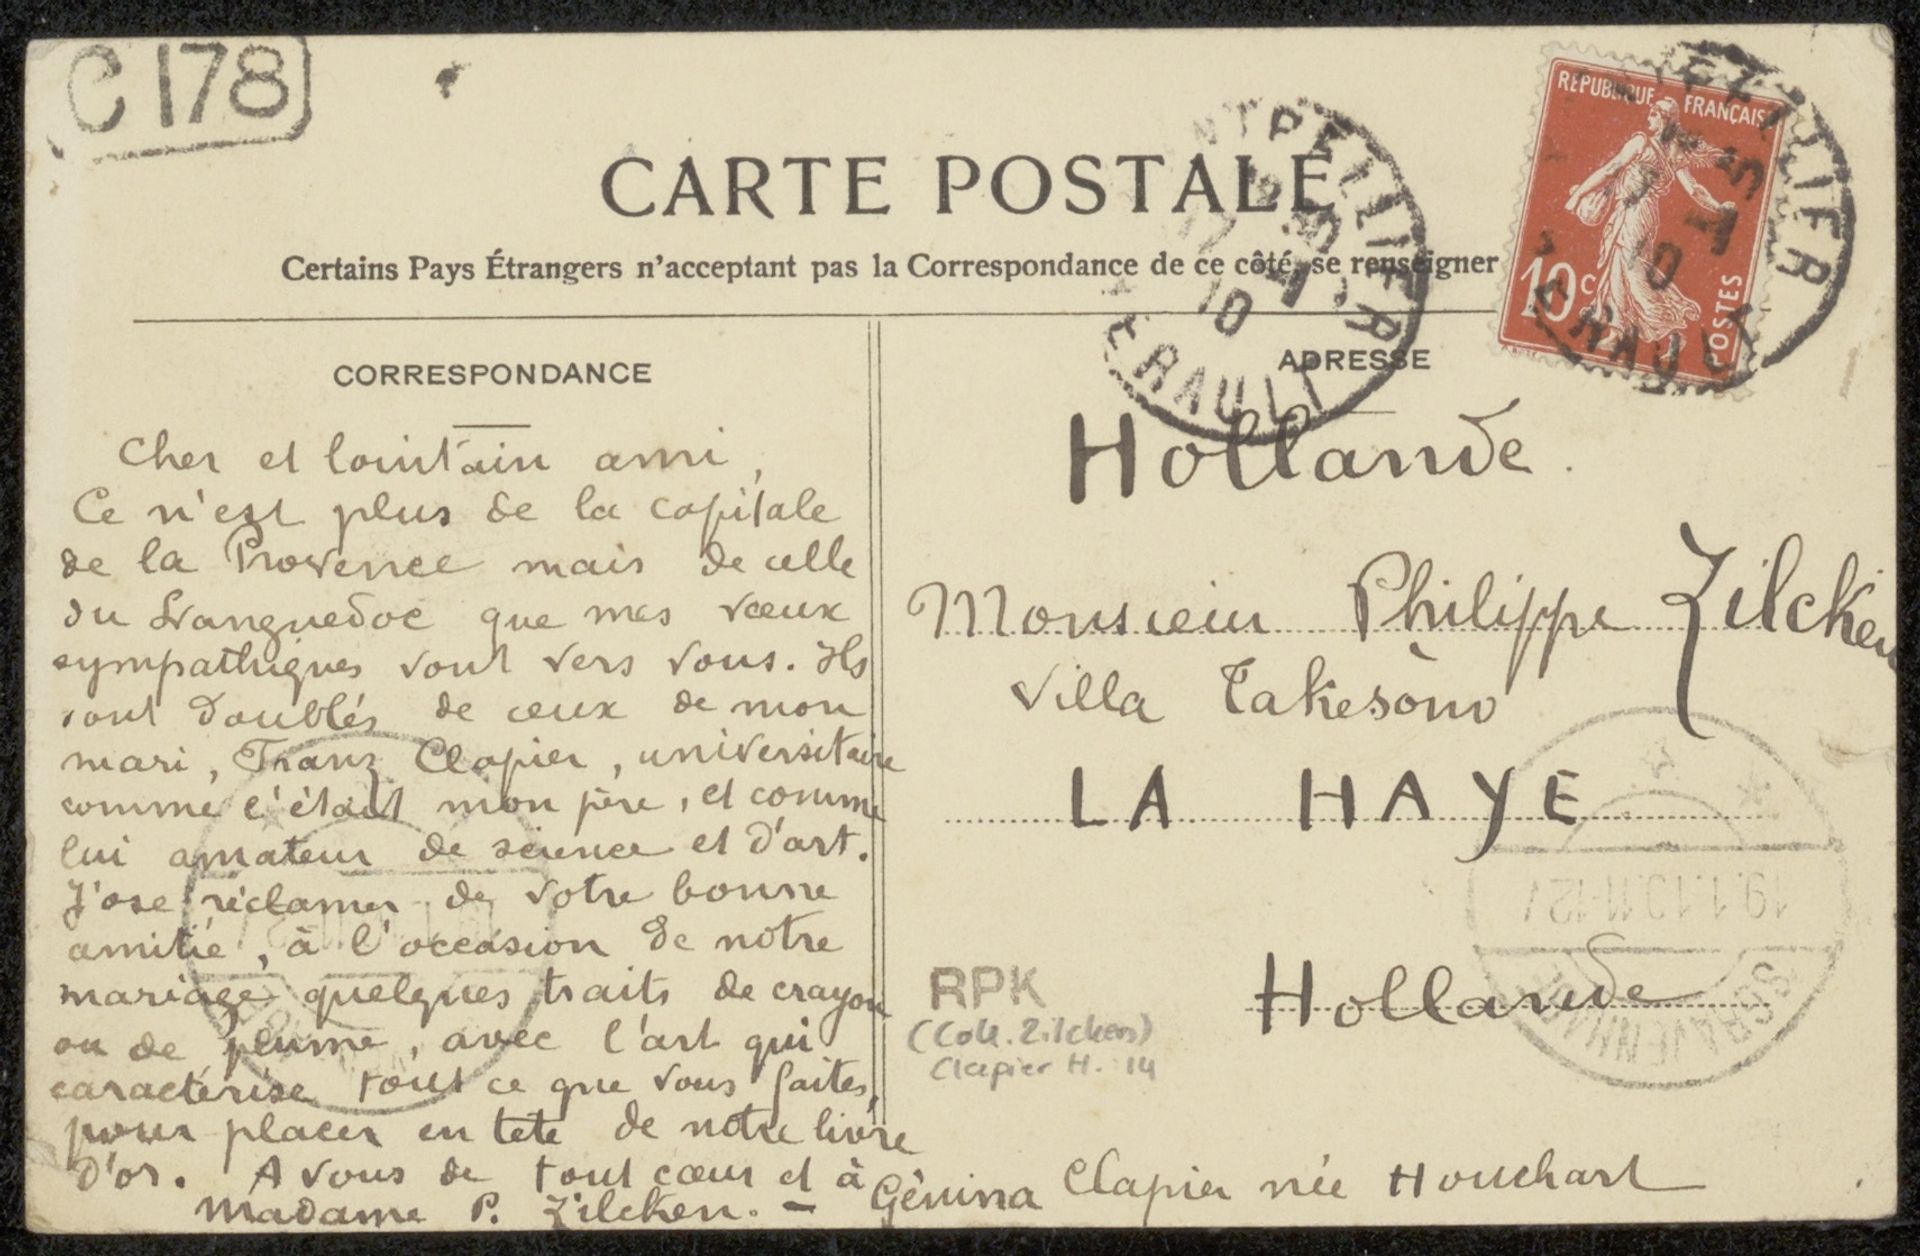 C 178
CARTE POSTALE
Certains Pays Étrangers n'acceptant pas la Correspondance de ce côté, se renseigner
REPUBLIQUE FRANÇAISE
10c
POSTES
MONTPELLIER
17
10
HERAULT
CORRESPONDANCE
ADRESSE
Cher et lointain ami,
Ce n'est plus de la capitale
de la Provence mais de celle
du Languedoc que mes vœux
sympathiques vont vers vous. Ils
sont doublés de ceux de mon
mari, Franz Clapier, universitaire
comme l'était mon père, et comme
lui amateur de science et d'art.
J'ose réclamer de votre bonne
amitié, à l'occasion de notre
mariage quelques traits de crayon
ou de plume, avec l'art qui
caractérise tout ce que vous faites,
pour placer en tête de notre livre
d'or. A vous de tout cœur et à
Madame P. Zilcken. – Génina Clapier née Houchart
Hollande.
Monsieur Philippe Zilcken
Villa Takesòno
LA HAYE
Hollande
19.1.10.11-12V
SGRAVENHAGE
RPK
(Coll. Zilcken)
Clapier H. : 14